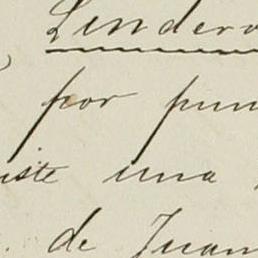 Lindero
por pun
iste una
de Juan